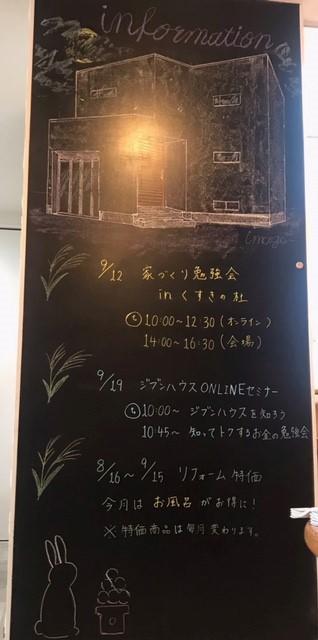 information
image
9/12 家づくり勉強会
in くすきの杜
10:00~12:30(オンライン)
14:00~16:30(会場)
9/19 ジブンハウスONLINEセミナー
10:00~ ジブンハウスを知ろう
10:45~ 知ってトクするお金の勉強会
8/16~9/15 リフォーム特価
今月はお風呂がお得に!
※特価商品は毎月変わります。